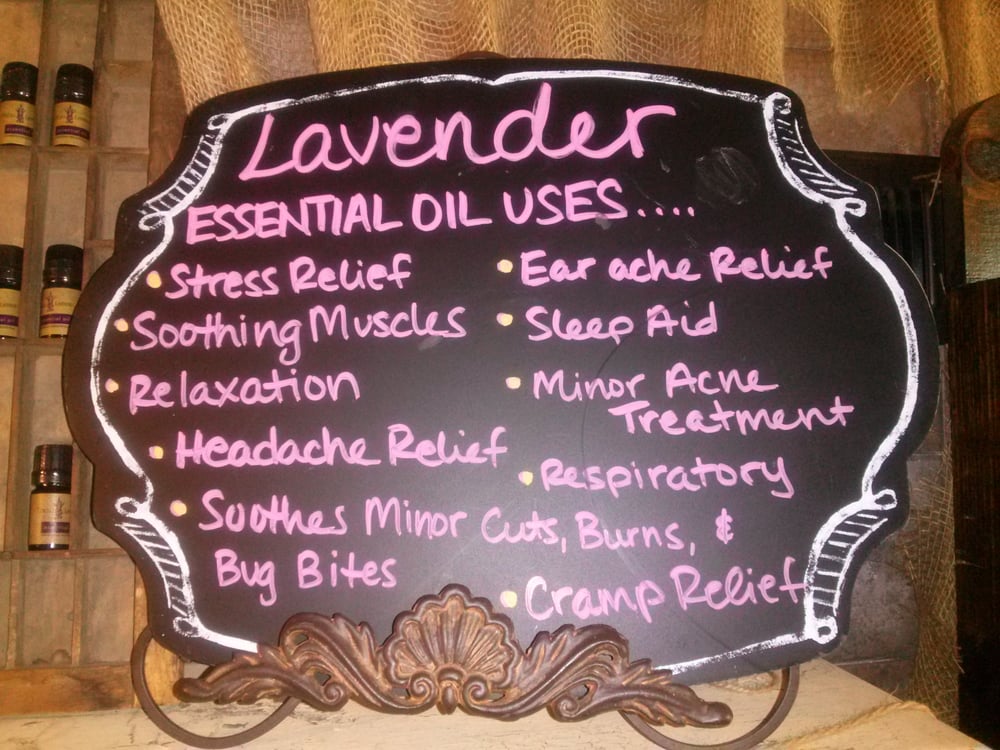 Lavender
ESSENTIAL OIL USES....
• Stress Relief
• Soothing Muscles
• Relaxation
• Headache Relief
• Soothes Minor Cuts, Burns, &
Bug Bites
• Ear ache Relief
• Sleep Aid
• Minor Acne
Treatment
• Respiratory
• Cramp Relief